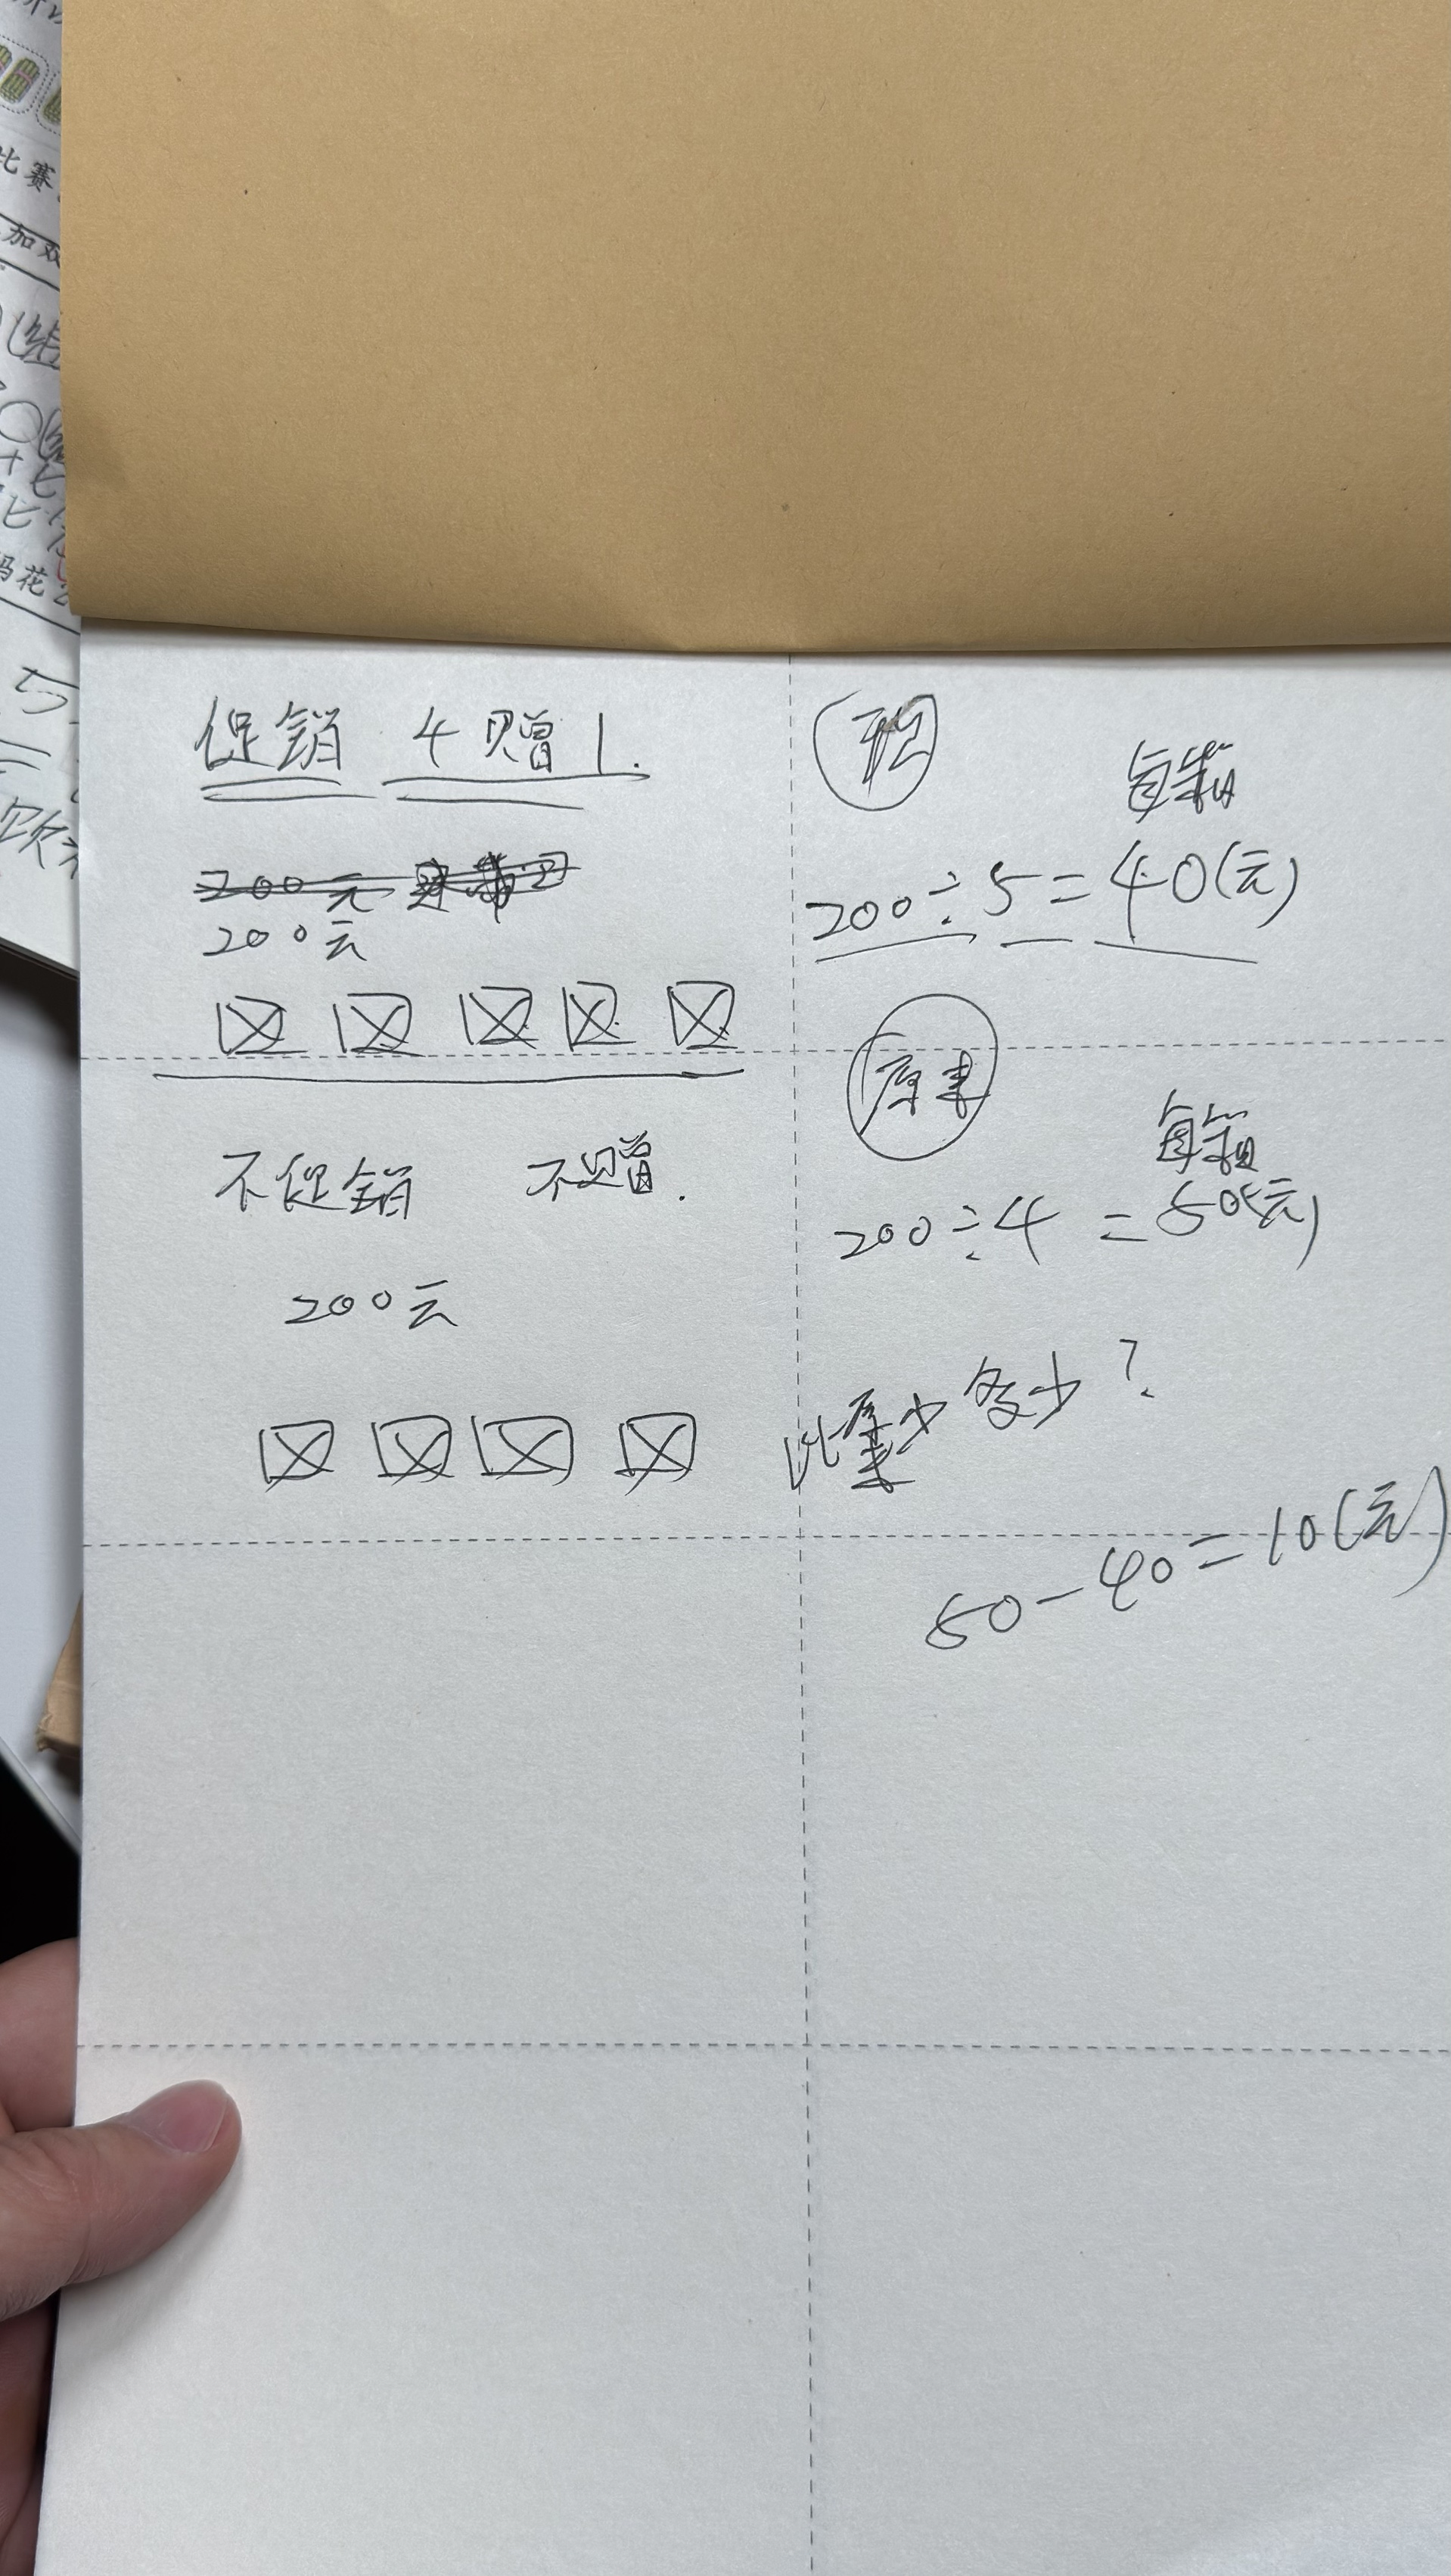 比赛
加双
促销 4赠1.
200元
200元
不促销 不赠.
200元
现
每箱
200÷5=40(元)
原来
每箱
200÷4=50(元)
比原来少多少?
50-40=10(元)